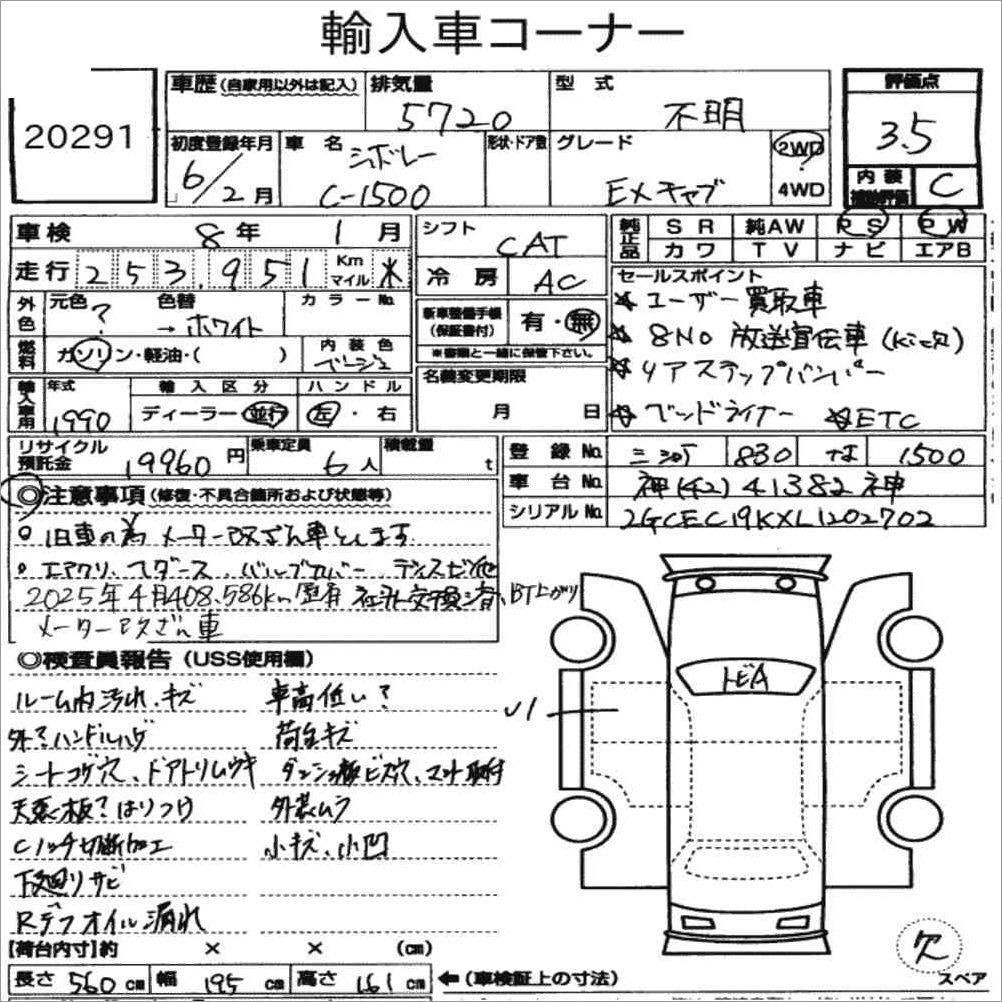 輸入車コーナー
20291
車歴 (自家用以外は記入) 排気量 5720 型式 不明
評価点 3.5
初度登録年月 6/2月 車名 シボレー C-1500 形状・ドア数 グレード EXキャブ 2WD ? 4WD
内装補助評価 C
車検 8年 1月 シフト CAT
純正品 SR 純AW PS PW
カワ TV ナビ エアB
走行 253,951 Km マイル * 冷房 AC
外色 元色 ? 色替 → ホワイト カラーNo.
新車整備手帳(保証書付) 有・無
※書類と一緒に保管下さい。
燃料 ガソリン・軽油・( ) 内装色 ベージュ
セールスポイント
* ユーザー買取車
* 8NO 放送宣伝車
* リアステップバンパー
* ベッドライナー * ETC
輸入車用 年式 1990 輸入区分 ディーラー 並行 ハンドル 左・右
名義変更期限 月 日
リサイクル預託金 19960円 乗車定員 6人 積載量 t
登録No. 830 な 1500
車台No. 神(42)41382神
シリアルNo. 2GCEC19KXL1202702
◎注意事項 (修復・不具合箇所および状態等)
旧車の為メーター改ざん車とします
エアクリ、ヘダース、バルブカバー
2025年4月408,586km 社外交換済有、BT上がり
メーター改ざん車
◎検査員報告 (USS使用欄)
ルーム内汚れ、キズ 車高低い?
外?ハンドルハゲ 荷台キズ
シートコゲ穴、ドアトリムウキ ダッシュ板ビス穴、マット取付
天張板?はりつけ 外装ムラ
Cノッチ切断加工 小キズ、小凹
下廻りサビ
Rデフオイル漏れ
トビA
[荷台内寸] 約 × × (cm)
長さ 560 cm 幅 195 cm 高さ 161 cm ←(車検証上の寸法)
欠
スペア